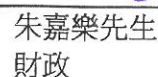 朱嘉樂先生
財政